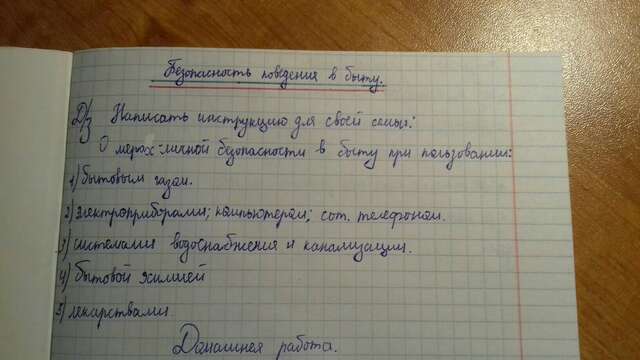 Безопасность поведения в быту.
Д/з Написать инструкцию для своей семьи:
О мерах личной безопасности в быту при пользовании:
1) бытовым газом.
2) электроприборами; компьютером; сот. телефоном.
3) системами водоснабжения и канализации.
4) бытовой химией
5) лекарствами.
Домашняя работа.